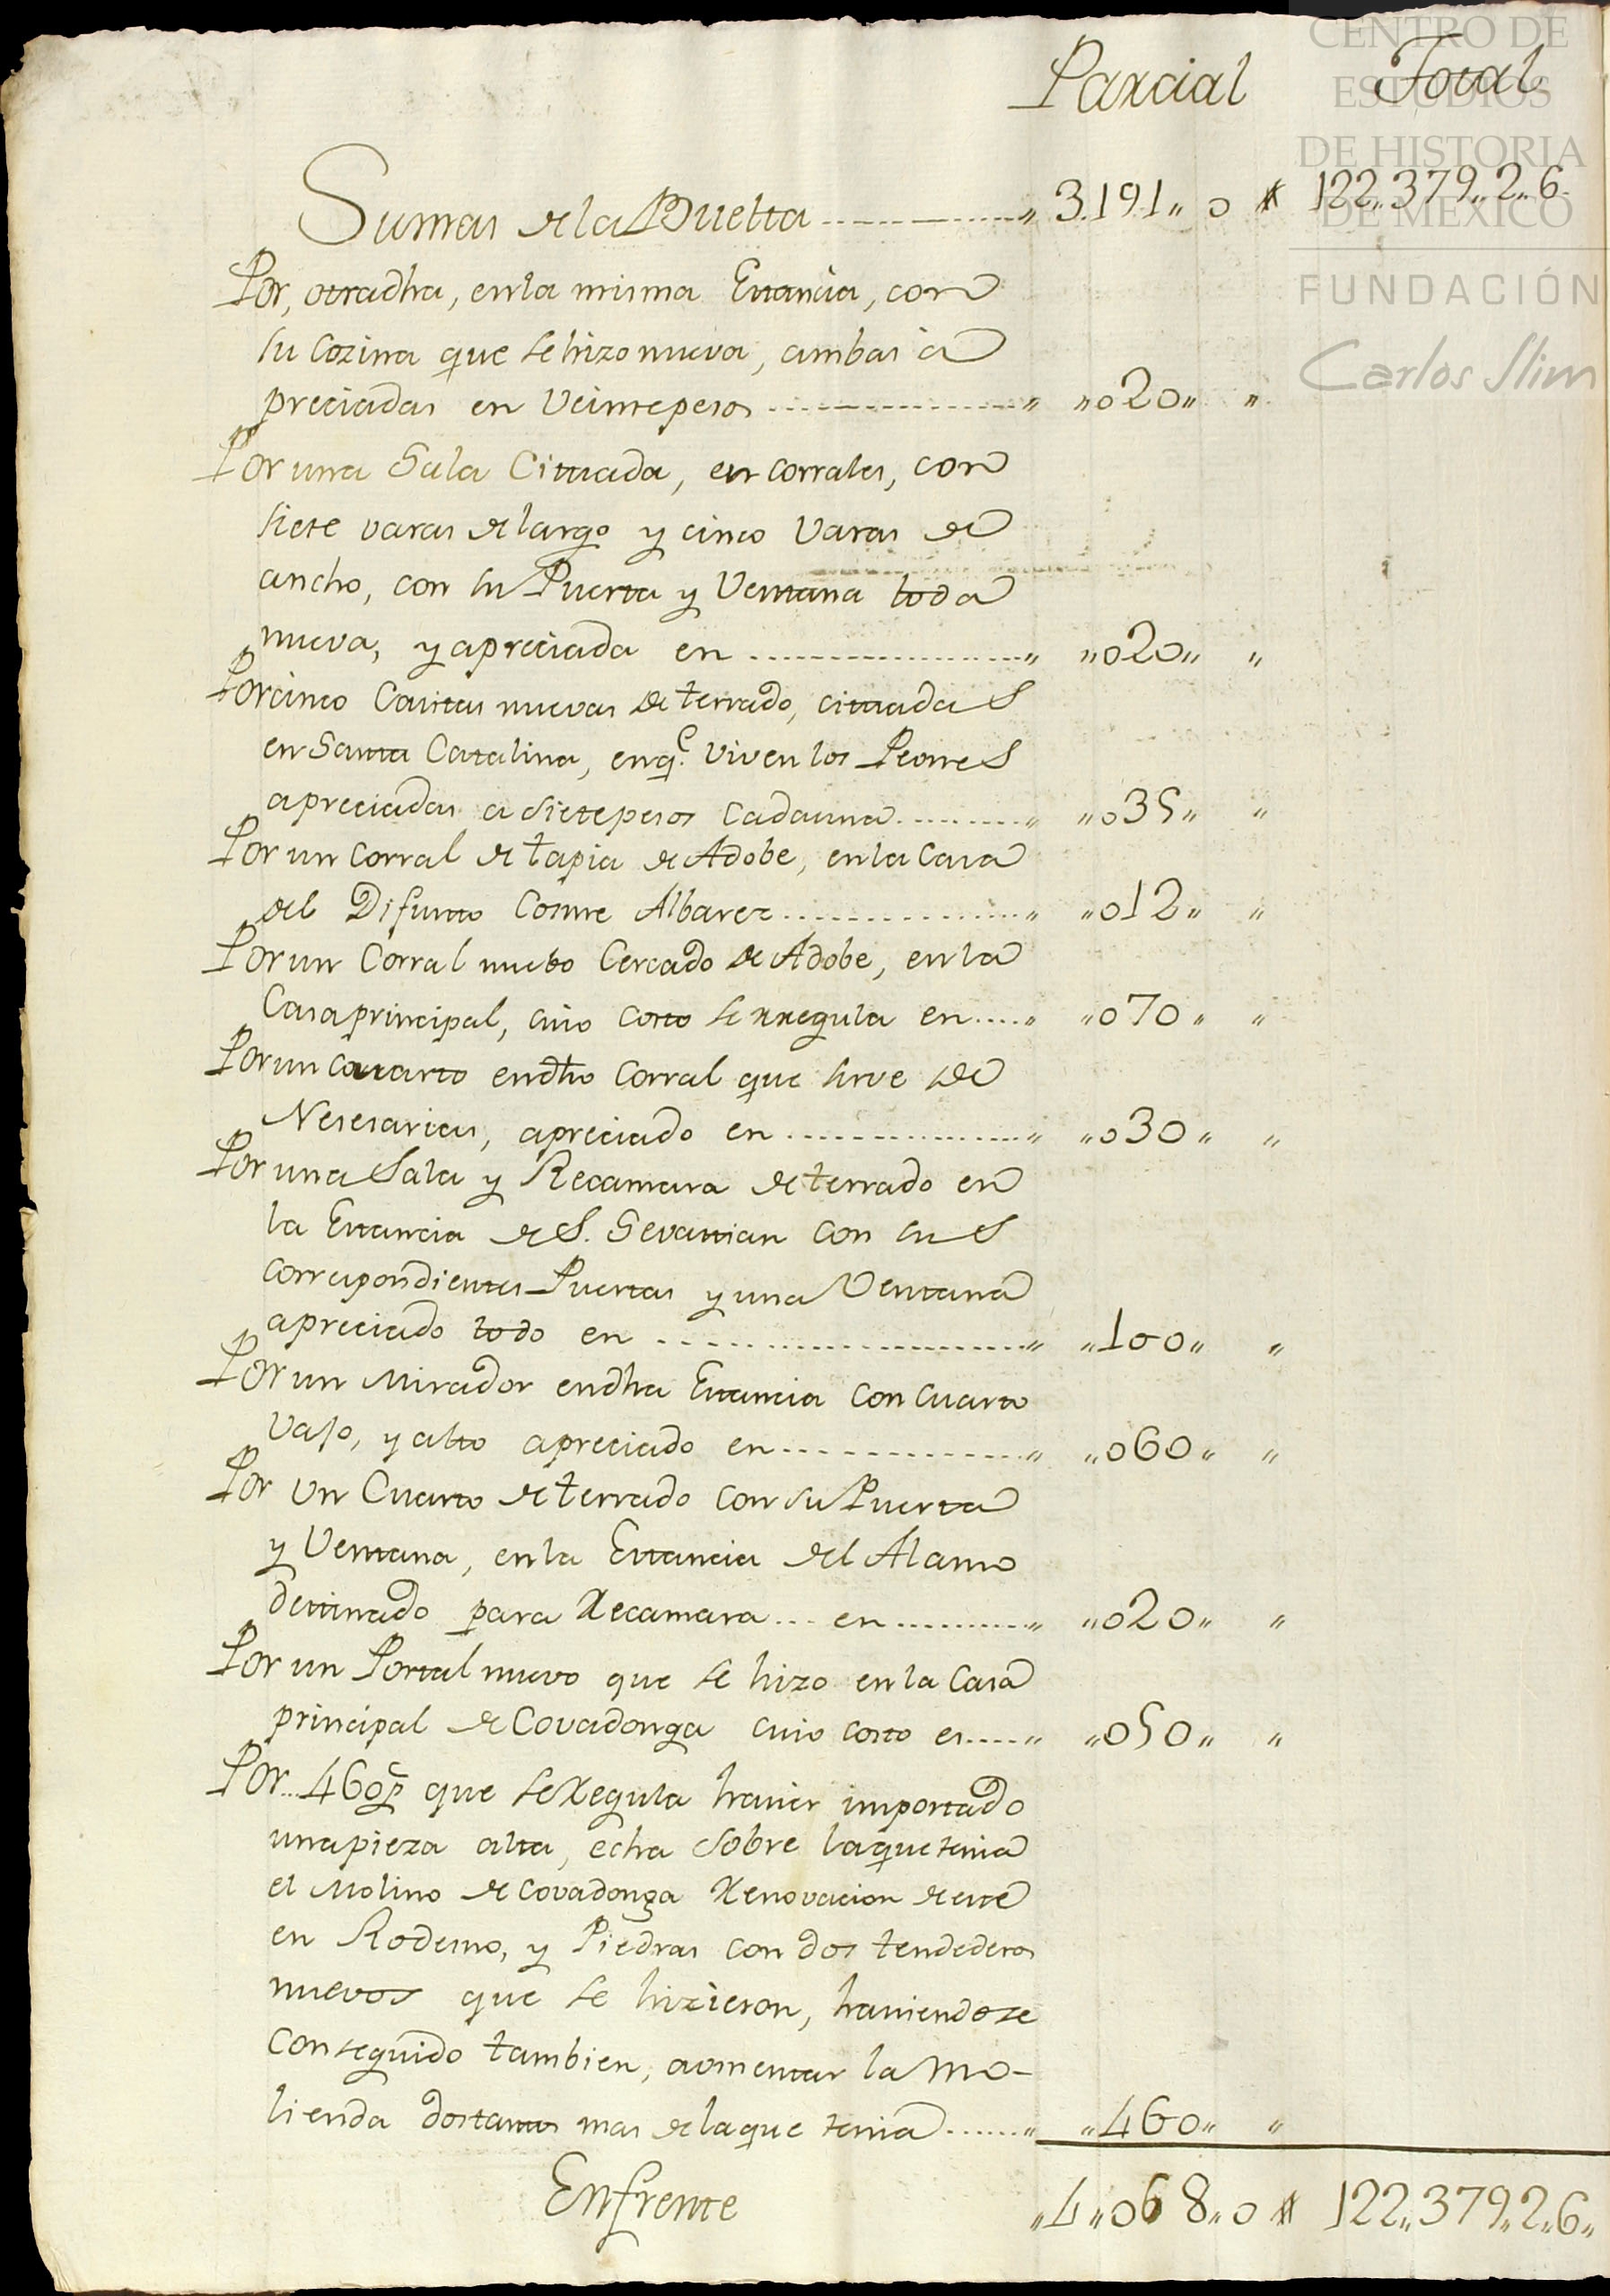 CENTRO DE
ESTUDIOS
DE HISTORIA
DE MÉXICO
FUNDACIÓN
Carlos Slim
Parcial Total
Sumas de la Buelta 3.191,, 0 122,,379,,2,,6
Por, otra dha, en la misma Estancia, con
su Cozina que se hizo nueva, ambas a
preciadas en Veinte pesos ,,020,, ,,
Por una Sala Cituada, en corrales, con
siete varas de largo y cinco Varas de
ancho, con su Puerta y Ventana toda
nueva, y apreciada en ,,020,, ,,
Por cinco Casitas nuevas de terrado, cituadas
en Santa Catalina, en q.e viven los Peones
apreciadas a siete pesos Cada una ,,035,, ,,
Por un Corral de tapia de Adobe, en la Casa
del Difunto Cosme Albarez ,,012,, ,,
Por un Corral nuebo Cercado de Adobe, en la
Casa principal, cuio costo se rregula en ,,070,, ,,
Por un Cuarto en dho Corral que sirve de
Nesesarias, apreciado en ,,030,, ,,
Por una Sala y Recamara de terrado en
la Estancia de S. Sevastian con sus
correspondientes Puertas y una Ventana
apreciado todo en ,,100,, ,,
Por un Mirador en dha Estancia con Cuarto
vajo, y alto apreciado en ,,060,, ,,
Por un Cuarto de terrado con su Puerta
y Ventana, en la Estancia del Alamo
destinado para Recamara en ,,020,, ,,
Por un Portal nuevo que se hizo en la Casa
principal de Covadonga cuio costo es ,,050,, ,,
Por 460 p.s que se Regula haver importado
una pieza alta, echa sobre la que tenia
el Molino de Covadonga Renovacion de este
en Rodesno, y Piedras con dos tendederos
nuevos que se hizieron, haviendose
conseguido tambien, aomentar la mo-
lienda dos tantos mas de la que tenia ,,460,, ,,
Enfrente ,,4,,068,,0 122,,379,,2,,6,,